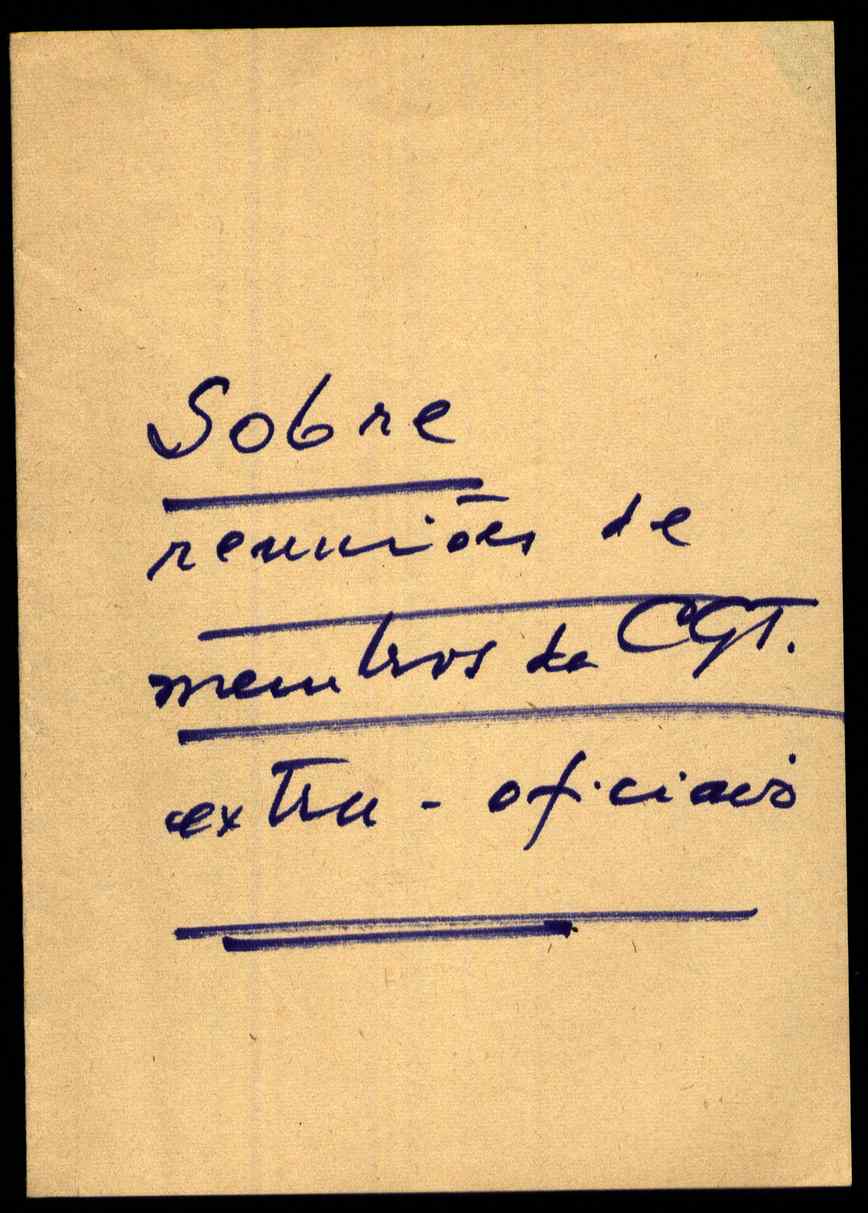 Sobre
reuniões de
membros da CGT.
extra-oficiais